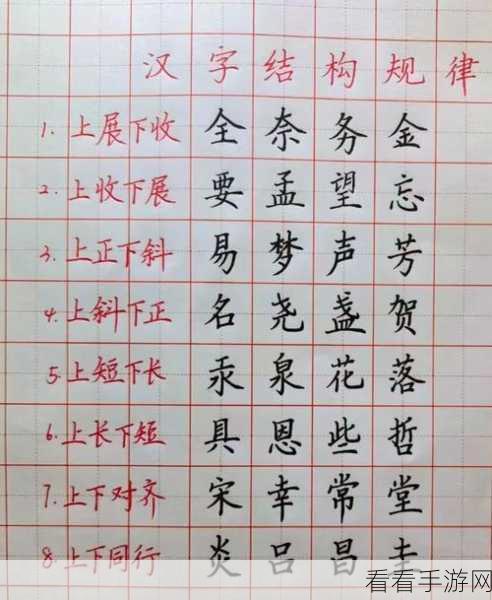 汉字结构规律
1. 上展下收 全奈务金
2. 上收下展 要孟望忘
3. 上正下斜 易梦声芳
4. 上斜下正 名尧盏贺
5. 上短下长 汞泉花落
6. 上长下短 具恩些哲
7. 上下对齐 宋幸常堂
8. 上下同行 炎吕昌圭
看看手游网